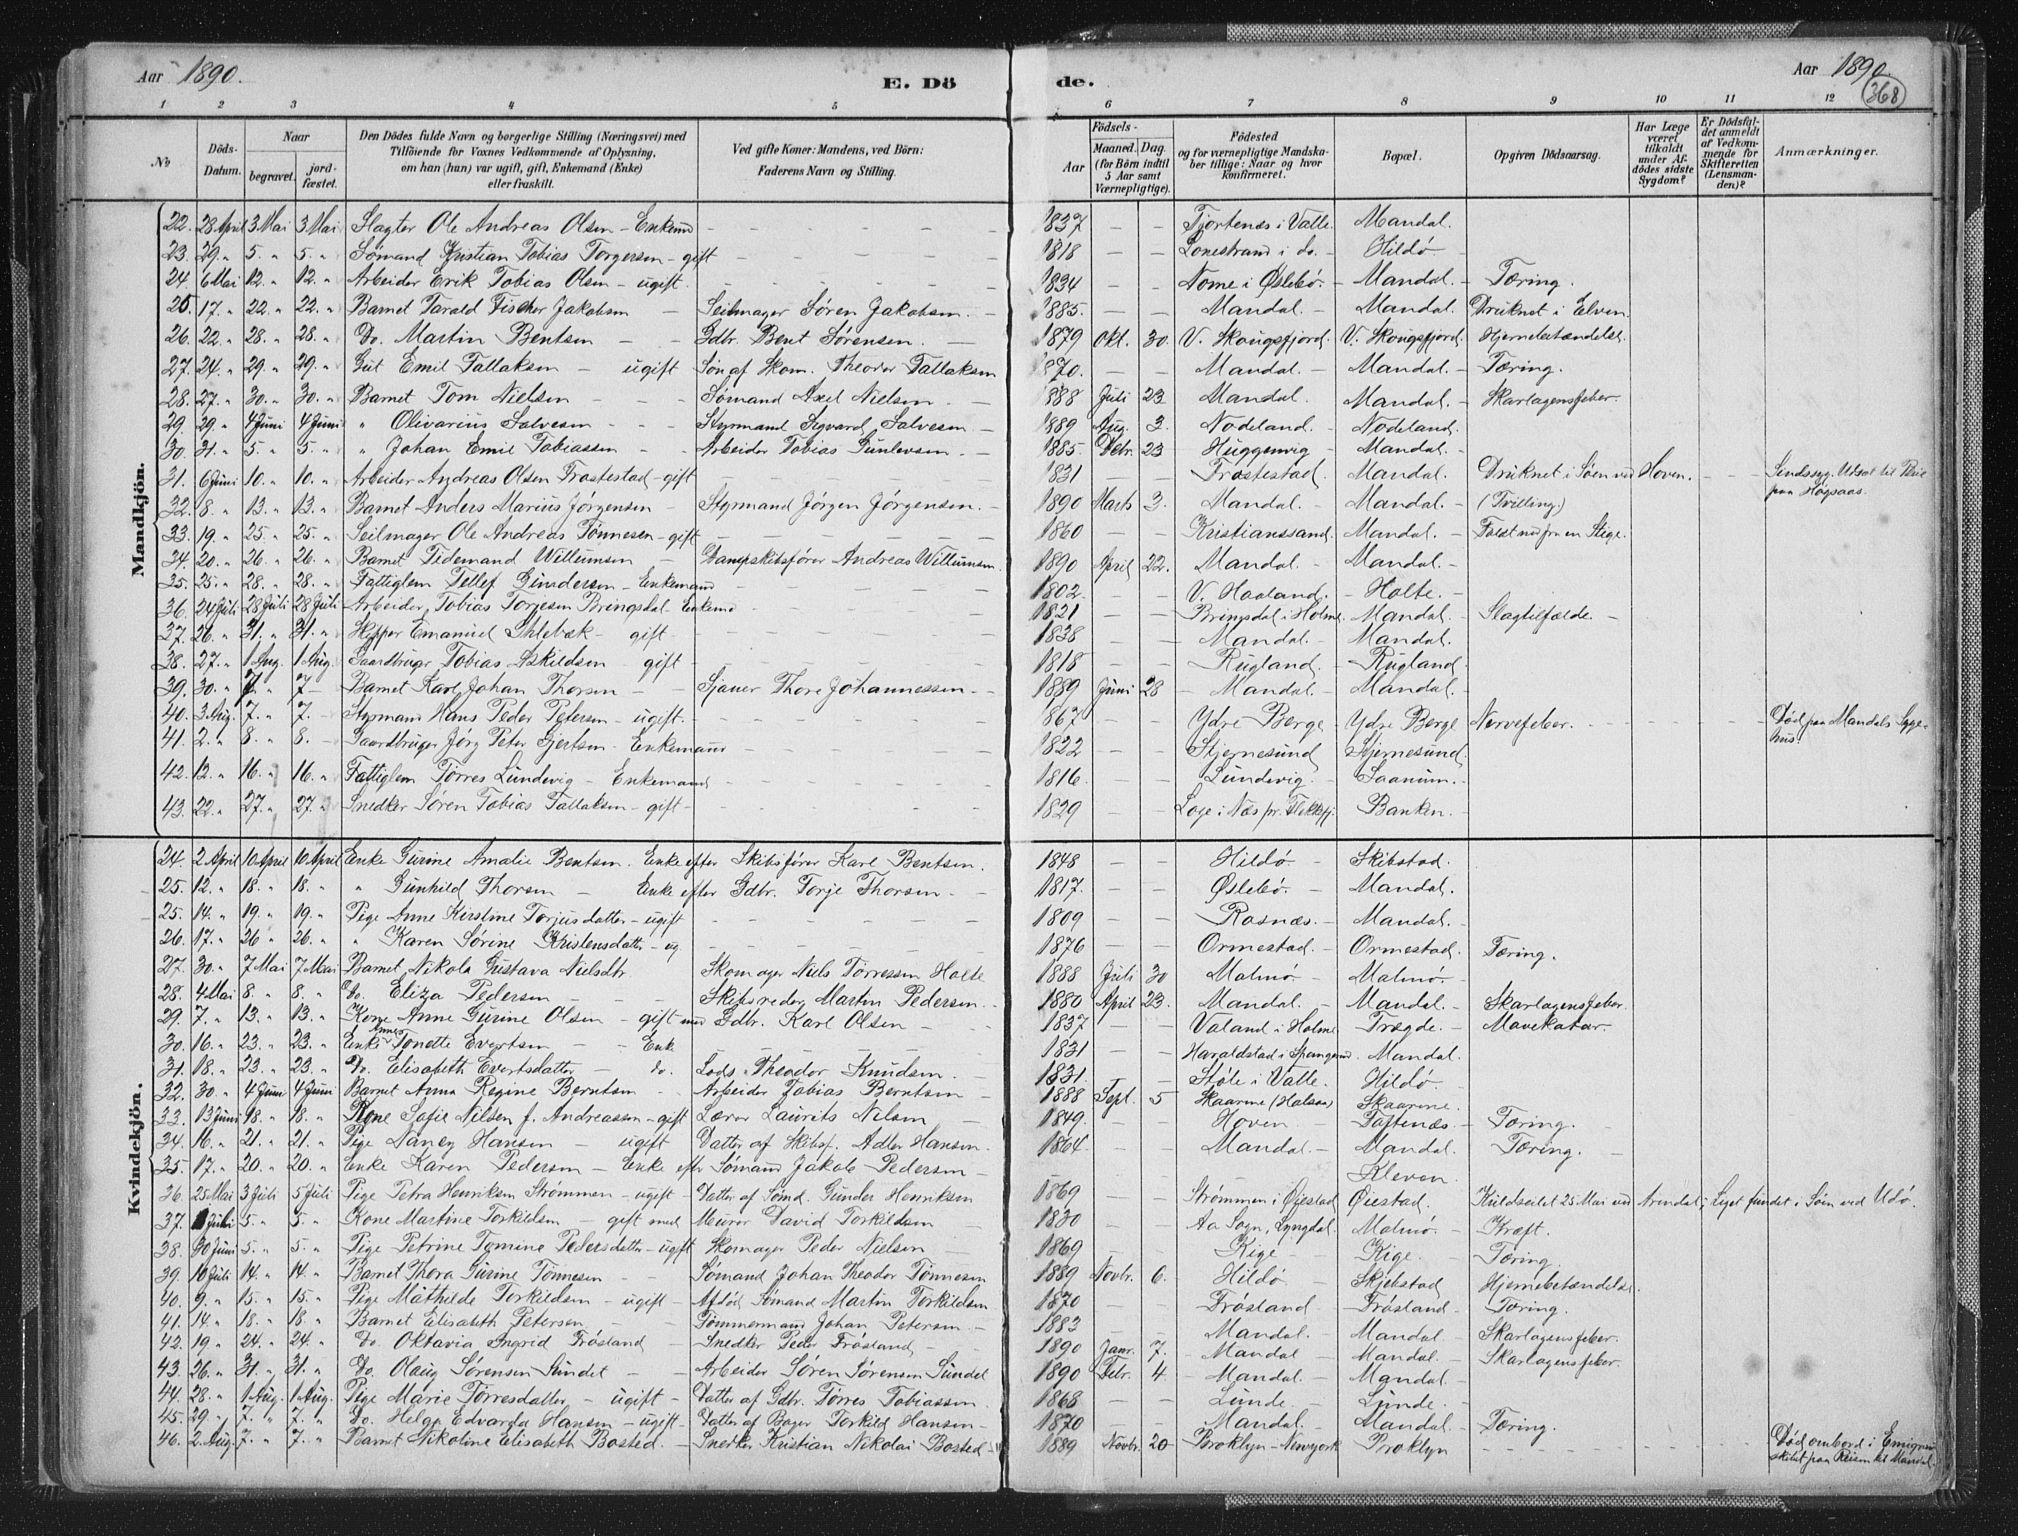 Aar 1890.
E. Dö
de.
Aar 1890.
368
1 2 3 4 5 6 7 8 9 10 11 12
No
Döds-Datum.
Naar
begravet.
jord-fæstet.
Den Dödes fulde Navn og borgerlige Stilling (Næringsvei) med
Tilföiende for Voxnes Vedkommende af Oplysning,
om han (hun) var ugift, gift, Enkemand (Enke)
eller fraskilt.
Ved gifte Koner: Mandens, ved Börn:
Faderens Navn og Stilling.
Födsels-
Aar
Maaned. Dag.
(for Börn indtil
5 Aar samt
Værnepligtige).
Födested
og for værnepligtige Mandska-
ber tillige: Naar og hvor
konfirmeret.
Bopæl.
Opgiven Dödsaarsag.
Har Læge
været
tilkaldt
under Af-
dödes sidste
Sygdom?
Er Dödsfal-
det anmeldt
af Vedkom-
mende for
Skifteretten
(Lensman-
den)?
Anmærkninger.
Mandkjön.
22. 28 April 3 Mai 3 Mai Slagter Ole Andreas Olsen - Enkemd 1837 Tjortenes i Valle. Mandal.
23. 29. " 5. " 5. " Sømand Kristian Tobias Torgersen - gift 1818 Lonestrand i do. Hildø
24. 6 Mai 12. " 12. " Arbeider Erik Tobias Olsen - ugift. 1834 Nome i Øslebø. Mandal. Tæring.
25. 17. " 22. " 22. " Barnet Tarald Fischer Jakobsen Seilmager Søren Jakobsen. 1885. Mandal. Mandal. Druknet i Elven.
26. 22. " 28. " 28. " Do. Martin Bentsen Gdbr. Bent Sørensen. 1879 Okt. 30. V. Skougsfjord. V. Skougsfjord. Hjernebetændelse.
27. 24. " 29. " 29. " Gut Emil Tallaksen - ugift Søn af Skom. Theodor Tallaksen 1870. Mandal. Mandal. Tæring.
28. 27. " 30. " 30. " Barnet Tom Nielsen Sømand Axel Nielsen. 1888 Juli 23 Mandal. Mandal. Skarlagensfeber.
29. 29. " 4 Juni 4 Juni " Olivarius Salvesen Styrmand Sigvard Salvesen 1889 Aug. 3. Nodeland. Nodeland.
30. 31. " 5. " 5. " " Johan Emil Tobiassen Arbeider Tobias Gunlevsen. 1885. Debr. 23 Huggenvig Mandal.
31. 6 Juni 10. " 10. " Arbeider Andreas Olsen Frøstestad - gift 1831 Frøstestad. Mandal. Druknet i Søen ved Hoven. Sindssyg. Udsat til Pleie
paa Høgsaas.
32. 8. " 13. " 13. " Barnet Anders Marius Jørgensen Styrmand Jørgen Jørgensen. 1890 Marts 3. Mandal. Mandal. (Tvilling.)
33. 19. " 25. " 25. " Seilmager Ole Andreas Tønnesen - gift 1860 Kristianssand. Mandal. Faldt ned fra en Stige.
34. 20. " 26. " 26. " Barnet Tidemand Willumsen Dampskibsfører Andreas Willumsen. 1890 April 22. Mandal. Mandal.
35. 25. " 28. " 28. " Fattiglem Tellef Gundersen - Enkemand 1802. V. Haaland. Holte.
36. 24 Juli 28 Juli 28 Juli Arbeider Tobias Torjesen Bringsdal Enkemd 1821 Bringsdal i Holme Mandal. Slagtilfælde.
37. 26. " 31. " 31. " Skipper Emanuel Ihlebæk - gift 1838 Mandal. Mandal.
38. 27. " 1 Aug. 1 Aug. Gaardbruger Tobias Eskildsen - gift 1818 Rugland. Rugland.
39. 30. " 7. 7 Barnet Karl Johan Thorsen Sjauer Thore Johannessen 1889 Juni 28 Mandal. Mandal.
40. 3 Aug. 7. " 7. Styrmand Hans Peder Petersen - ugift. 1867 Ydre Berge Ydre Berge Nervefeber. Død paa Mandals Syge-
hus.
41. 2. " 8. " 8. Gaardbruger Jørg Peter Gjertsen. Enkemand 1822 Stjernesund Stjernesund
42. 12. " 16. " 16. " Fattiglem Tørres Lundevig - Enkemand 1816 Lundevig. Saanum.
43. 22. " 27. " 27. " Snedker Søren Tobias Tallaksen - gift 1829 Loge i Næs pr. Flekkefj. Banken.
Kvindekjön.
24. 2 April 10 April 10 April Enke Gurine Amalie Bentsen. Enke efter Skibsfører Karl Bentsen. 1848 Hildø Skibstad.
25. 12. " 18. " 18. " " Gunhild Thorsen Enke efter Gdbr. Torje Thorsen. 1817. Øslebø. Mandal.
25. 14. " 19. " 19. " Pige Anne Kirstine Torjusdatter - ugift 1809 Rosnæs. Mandal.
26. 17. " 26 " 26. " " Karen Sørine Kristensdatter - ug 1876 Ormestad. Ormestad. Tæring.
27. 30. " 7 Mai 7 Mai Barnet Nikola Gustava Nielsdtr. Skomager Niels Tørressen Holte 1888 Juli 30 Malmø. Malmø.
28. 4 Mai 8. " 8. " Do. Eliza Pedersen Skibsreder Martin Pedersen. 1880 April 23. Mandal. Mandal. Skarlagensfeber.
29. 7. " 13. " 13. " Kone Anne Gurine Olsen - gift med Gdbr. Karl Olsen 1837 Valand i Holme Trægde. Mavekatar.
30. 16. " 23. " 23. " Enke Tonette Evertsen Enke 1831 Haraldstad i Spangereid. Mandal.
31. 18. " 23. " 23. " Do. Elisabeth Evertsdatter do. Lods. Theodor Knudsen. 1831. Støle i Valle. Hildø.
32. 30. " 4 Juni 4 Juni Barnet Anna Regine Berntsen Arbeider Tobias Berntsen 1888 Sept. 5 Skaarene (Halsaa) Skaarene.
33. 13 Juni 18. " 18. " Kone Sofie Nilsen f. Andreassen - gift Lærer Laurits Nilsen 1849. Hoven Toftenæs. Tæring.
34. 16. " 21. " 21. " Pige Nancy Hansen - ugift Datter af Skibsf. Adler Hansen. 1864. Mandal. Mandal. Tæring.
35. 17. " 20. " 20. " Enke Karen Pedersen - Enke efter Sømand Jakob Pedersen Kleven.
36. 25 Mai 3 Juli 5 Juli Pige Petra Henriksen Strømmen - ugift Datter af Sømd. Gunder Henriksen 1869 Strømmen i Øiestad Øiestad. Kuldseilet 25 Mai ved Arendal; Liget fundet i Søen ved Udø.
37. 1 Juli 5. " 5. " Kone Martine Torkildsen - gift med Murer David Torkildsen 1830 Aa Sogn, Lyngdal. Malmø. Kræft.
38. 30 Juni 5. " 5. " Pige Petrine Tomine Pedersdatter - ugift Skomager Peder Nielsen 1869 Kige Kige. Tæring.
39. 10 Juli 14. " 14. " Barnet Thora Gurine Tønnesen Sømand Johan Theodor Tønnesen 1889 Novbr. 6. Hildø Skjebstad Hjernebetændelse.
40. 9. " 15. " 15. " Pige Mathilde Torkildsen - ugift Afdød Sømand Martin Torkildsen 1870 Frøsland Frøsland Tæring.
41. 14. " 18. " 18. " Barnet Elisabeth Petersen Tømmermand Johan Petersen 1883 Mandal. Mandal. Skarlagensfeber.
42. 19 " 24. " 24. " Do. Oktavia Ingrid Frøsland Snedker Peder Frøsland 1890 Janr. 7. Mandal Mandal. Skarlagensfeber.
43. 26. " 31. " 31. " Do. Olaug Sørensen Sundet Arbeider Søren Sørensen Sundet 1890 Febr. 4. Mandal. Mandal.
44. 28. " 1 Aug. 1 Aug. Pige Marie Tørresdatter - ugift Datter af Gdbr. Tørres Tobiassen 1868 Lunde. Lunde.
45. 29. " 7. " 7. " Do. Helga Edvarda Hansen - ugift Datter af Bager Torkild Hansen 1870 Mandal. Mandal. Tæring.
46. 2 Aug. 7. " 7. " Barnet Nikoline Elisabeth Bosted. Snedker Kristian Nikolai Bosted 1889 Novbr. 20 Broklyn - Newyork Broklyn Død ombord i Emigrant
skibet paa Reisen til Mandal.